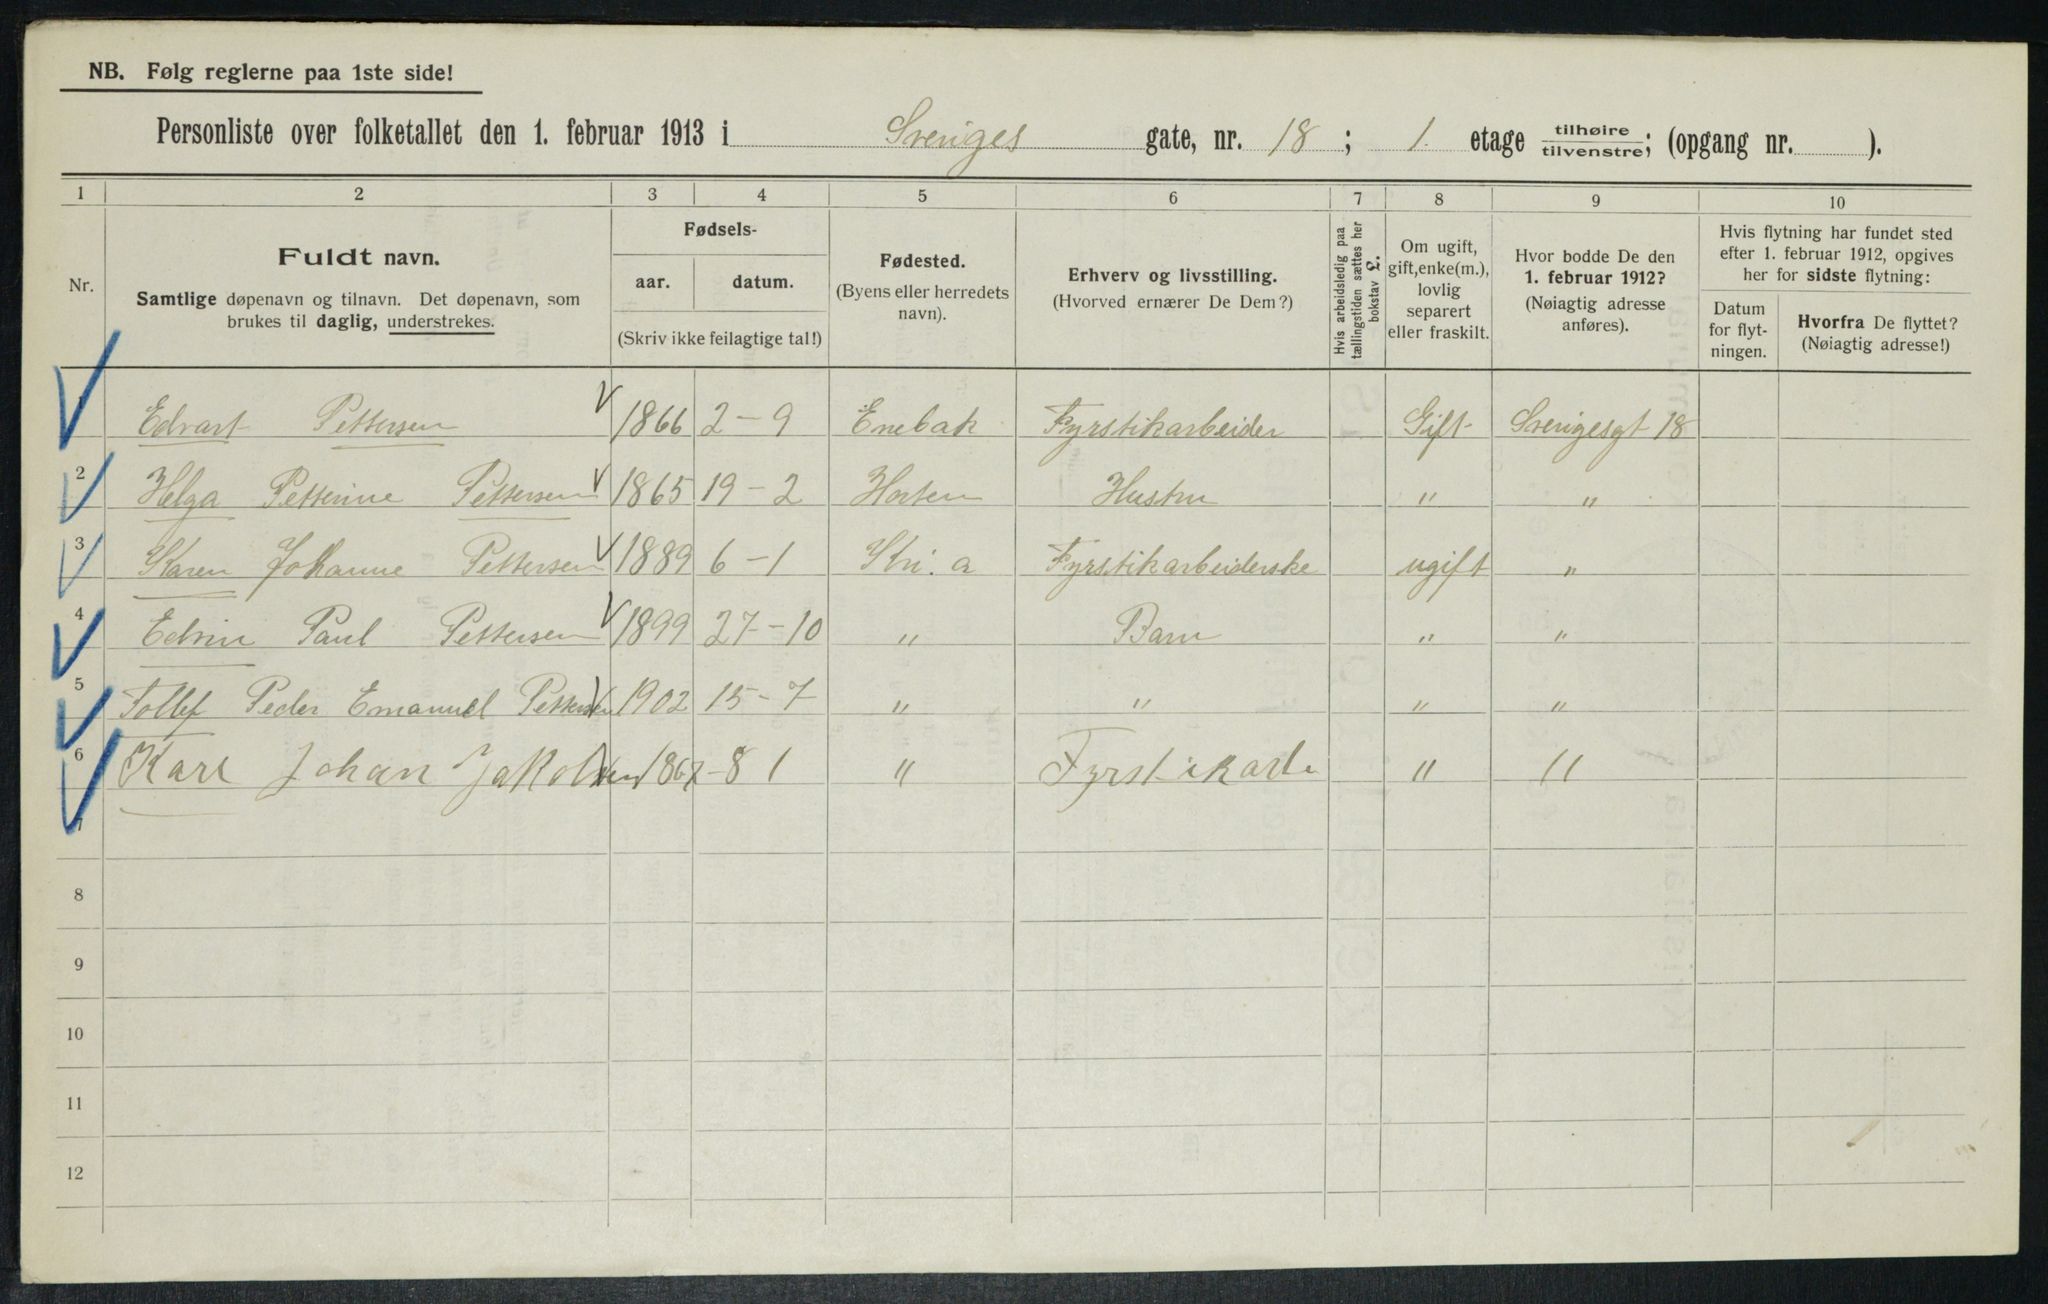 NB. Følg reglerne paa 1ste side!
Personliste over folketallet den 1. februar 1913 i Sveriges gate, nr. 18 ; 1. etage tilhøire/tilvenstre; (opgang nr. ).
1 2 3 4 5 6 7 8 9 10
Nr.
Fuldt navn.
Samtlige døpenavn og tilnavn. Det døpenavn, som
brukes til daglig, understrekes.
Fødsels-
aar. datum.
(Skriv ikke feilagtige tal!)
Fødested.
(Byens eller herredets
navn).
Erhverv og livsstilling.
(Hvorved ernærer De Dem?)
Hvis arbeidsledig paa
tællingstiden sættes her
bokstav L.
Om ugift,
gift, enke(m.),
lovlig
separert
eller fraskilt.
Hvor bodde De den
1. februar 1912?
(Nøiagtig adresse
anføres).
Hvis flytning har fundet sted
efter 1. februar 1912, opgives
her for sidste flytning:
Datum
for flyt-
ningen.
Hvorfra De flyttet?
(Nøiagtig adresse!)
Edvart Pettersen 1866 2-9 Enebak Fyrstikarbeider Gift Sverigesgt 18
2 Helga Petterine Pettersen 1865 19-2 Horten Hustru " "
3 Karen Johanne Pettersen 1889 6-1 Kri.a Fyrstikarbeiderske ugift "
4 Edvin Paul Pettersen 1899 27-10 " Barn " "
5 Tollef Peder Emanuel Pettersen 1902 15-7 " " " "
6 Karl Johan 8 1 " " "
7
8
9
10
11
12